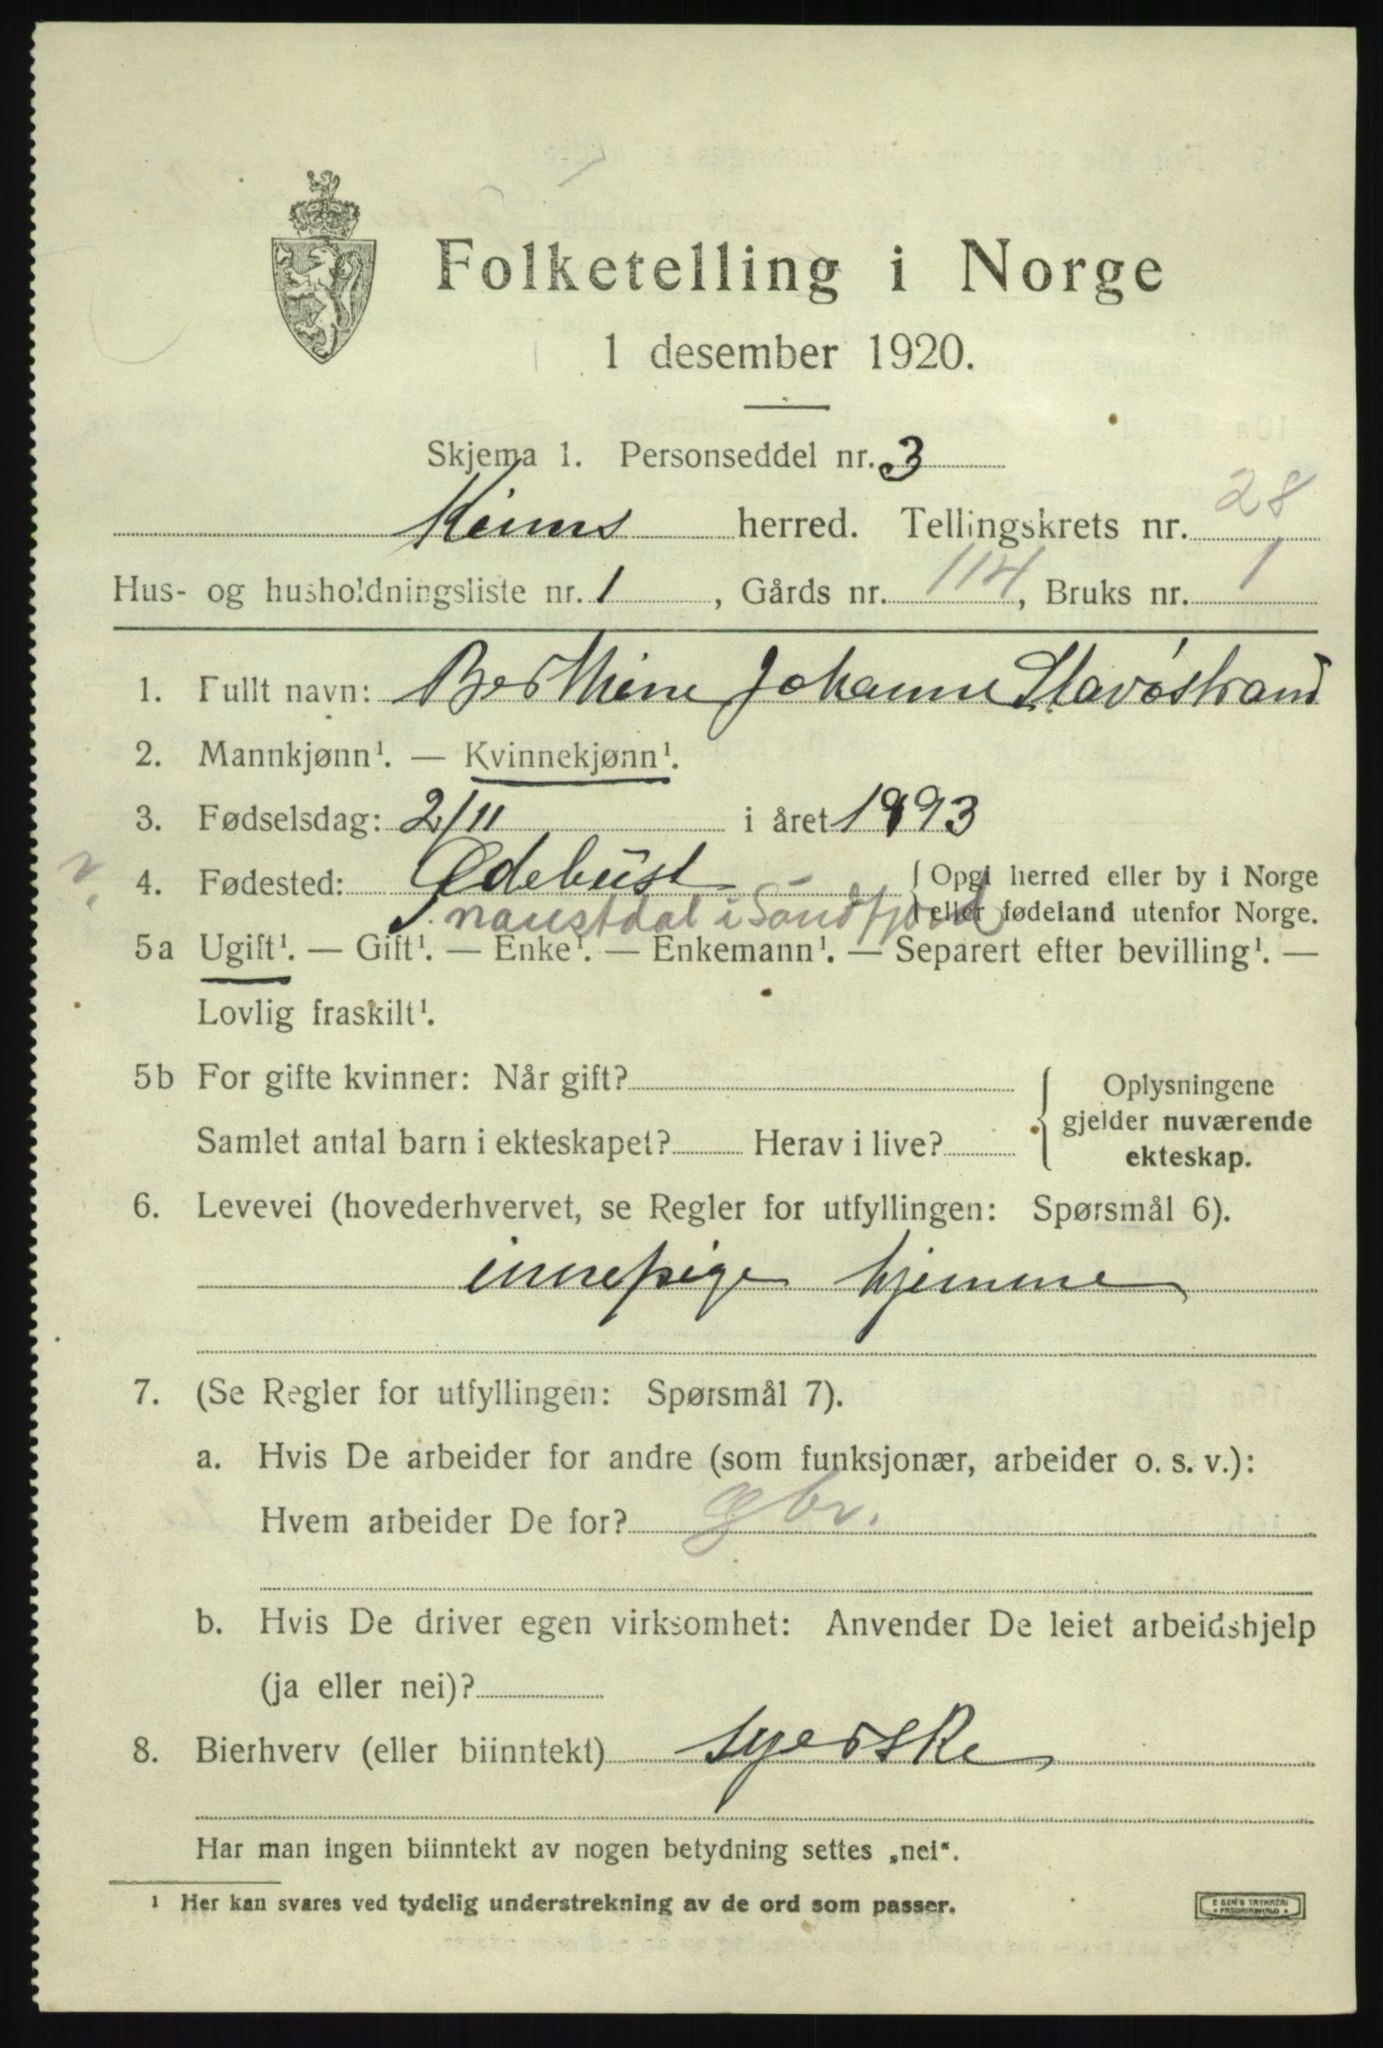 Folketelling i Norge
1 desember 1920.
Skjema 1. Personseddel nr. 3
Kinns herred. Tellingskrets nr. 28
Hus- og husholdningsliste nr. 1, Gårds nr. 114, Bruks nr. 1
1. Fullt navn: Berthine Johanne Stavøstrand
2. Mannkjønn¹. — Kvinnekjønn¹.
3. Fødselsdag: 2/11 i året 1893
4. Fødested: Ødebust { Opgi herred eller by i Norge
naustdal i Søndfjord eller fødeland utenfor Norge.
5a Ugift¹. — Gift¹. — Enke¹. — Enkemann¹. — Separert efter bevilling¹. —
Lovlig fraskilt¹.
5b For gifte kvinner: Når gift?
Samlet antal barn i ekteskapet? Herav i live?
{ Oplysningene
gjelder nuværende
ekteskap.
6. Levevei (hovederhvervet, se Regler for utfyllingen: Spørsmål 6).
innepige hjemme
7. (Se Regler for utfyllingen: Spørsmål 7).
a. Hvis De arbeider for andre (som funksjonær, arbeider o. s. v.):
Hvem arbeider De for? gbr.
b. Hvis De driver egen virksomhet: Anvender De leiet arbeidshjelp
(ja eller nei)?
8. Bierhverv (eller biinntekt) syerske
Har man ingen biinntekt av nogen betydning settes „nei“.
¹ Her kan svares ved tydelig understrekning av de ord som passer.